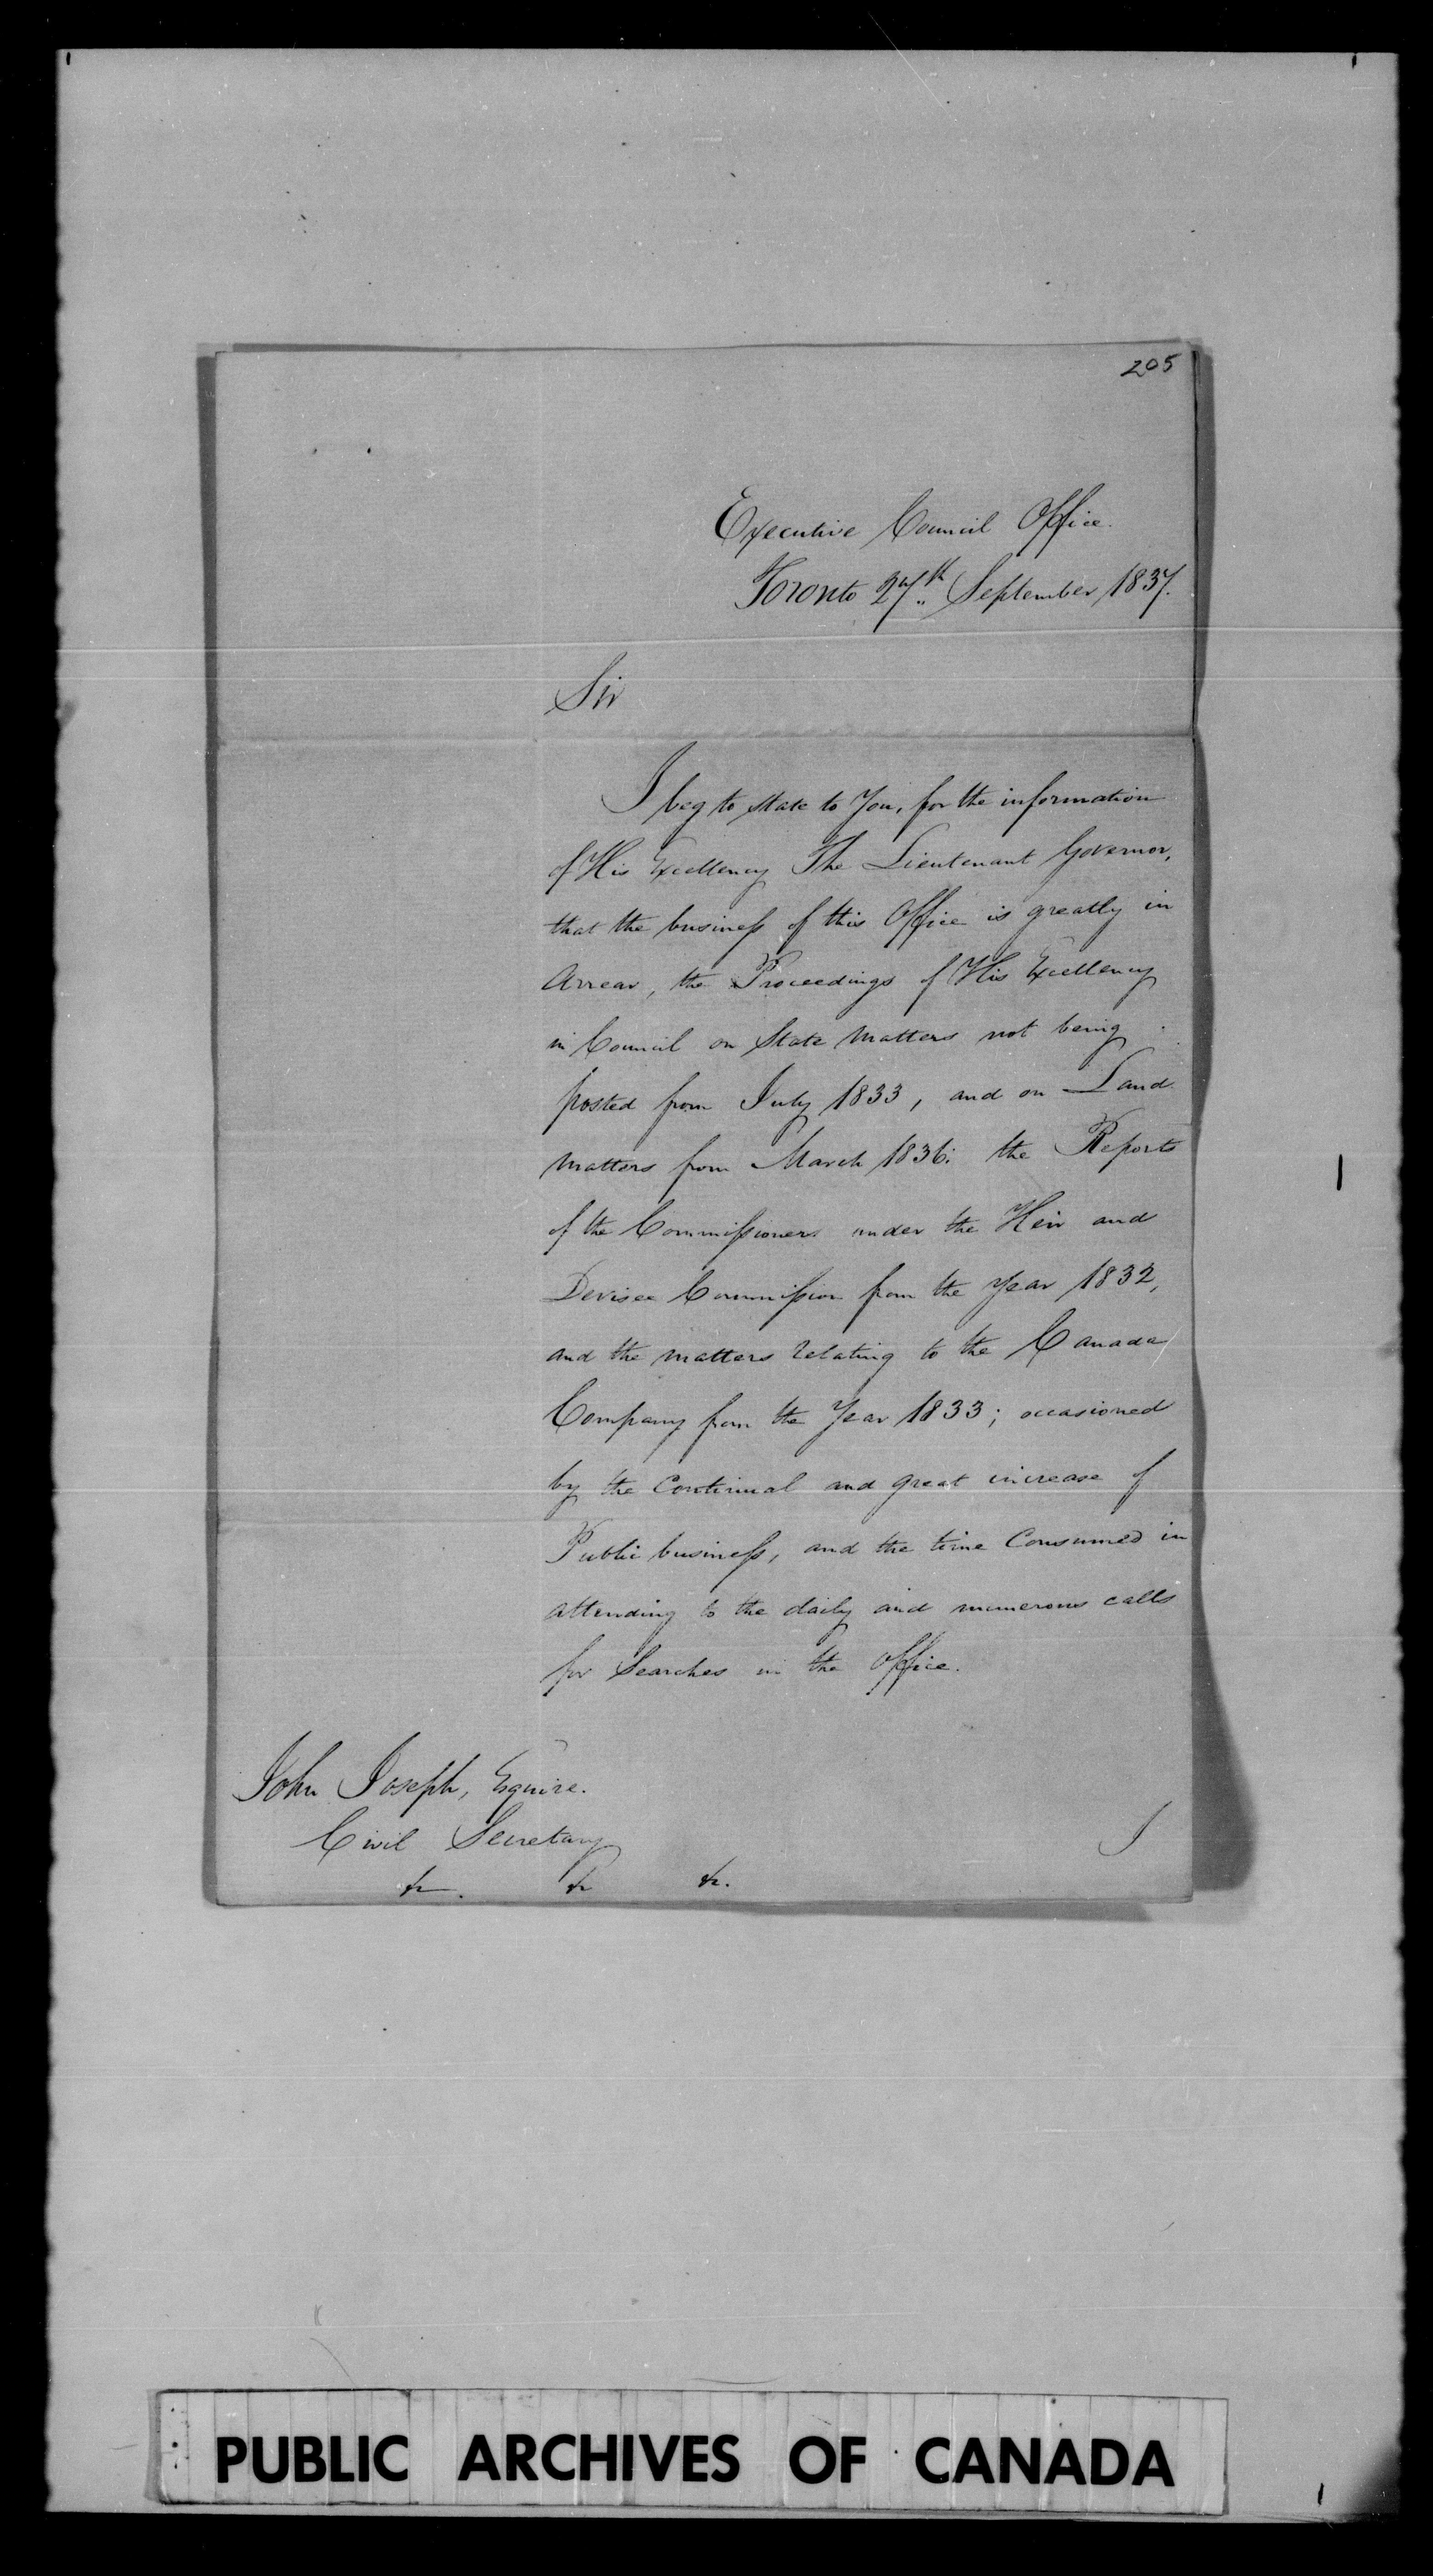 205
Executive Council Office.
Toronto 27th September 1837.
Sir
I beg to state to You, for the information
of His Excellency The Lieutenant Governor,
that the business of this Office is greatly in
Arrear, the Proceedings of His Excellency
in Council on State Matters not being
posted from July 1833, and on Land
Matters from March 1836: the Reports
of the Commissioners under the Heir and
Devisee Commission from the Year 1832,
and the matters relating to the Canada
Company from the Year 1833; occasioned
by the Continual and great increase of
Public business, and the time Consumed in
attending to the daily and numerous calls
for Searches in the Office.
John Joseph, Esquire.
Civil Secretary
&c. &c &c.
I
PUBLIC ARCHIVES OF CANADA